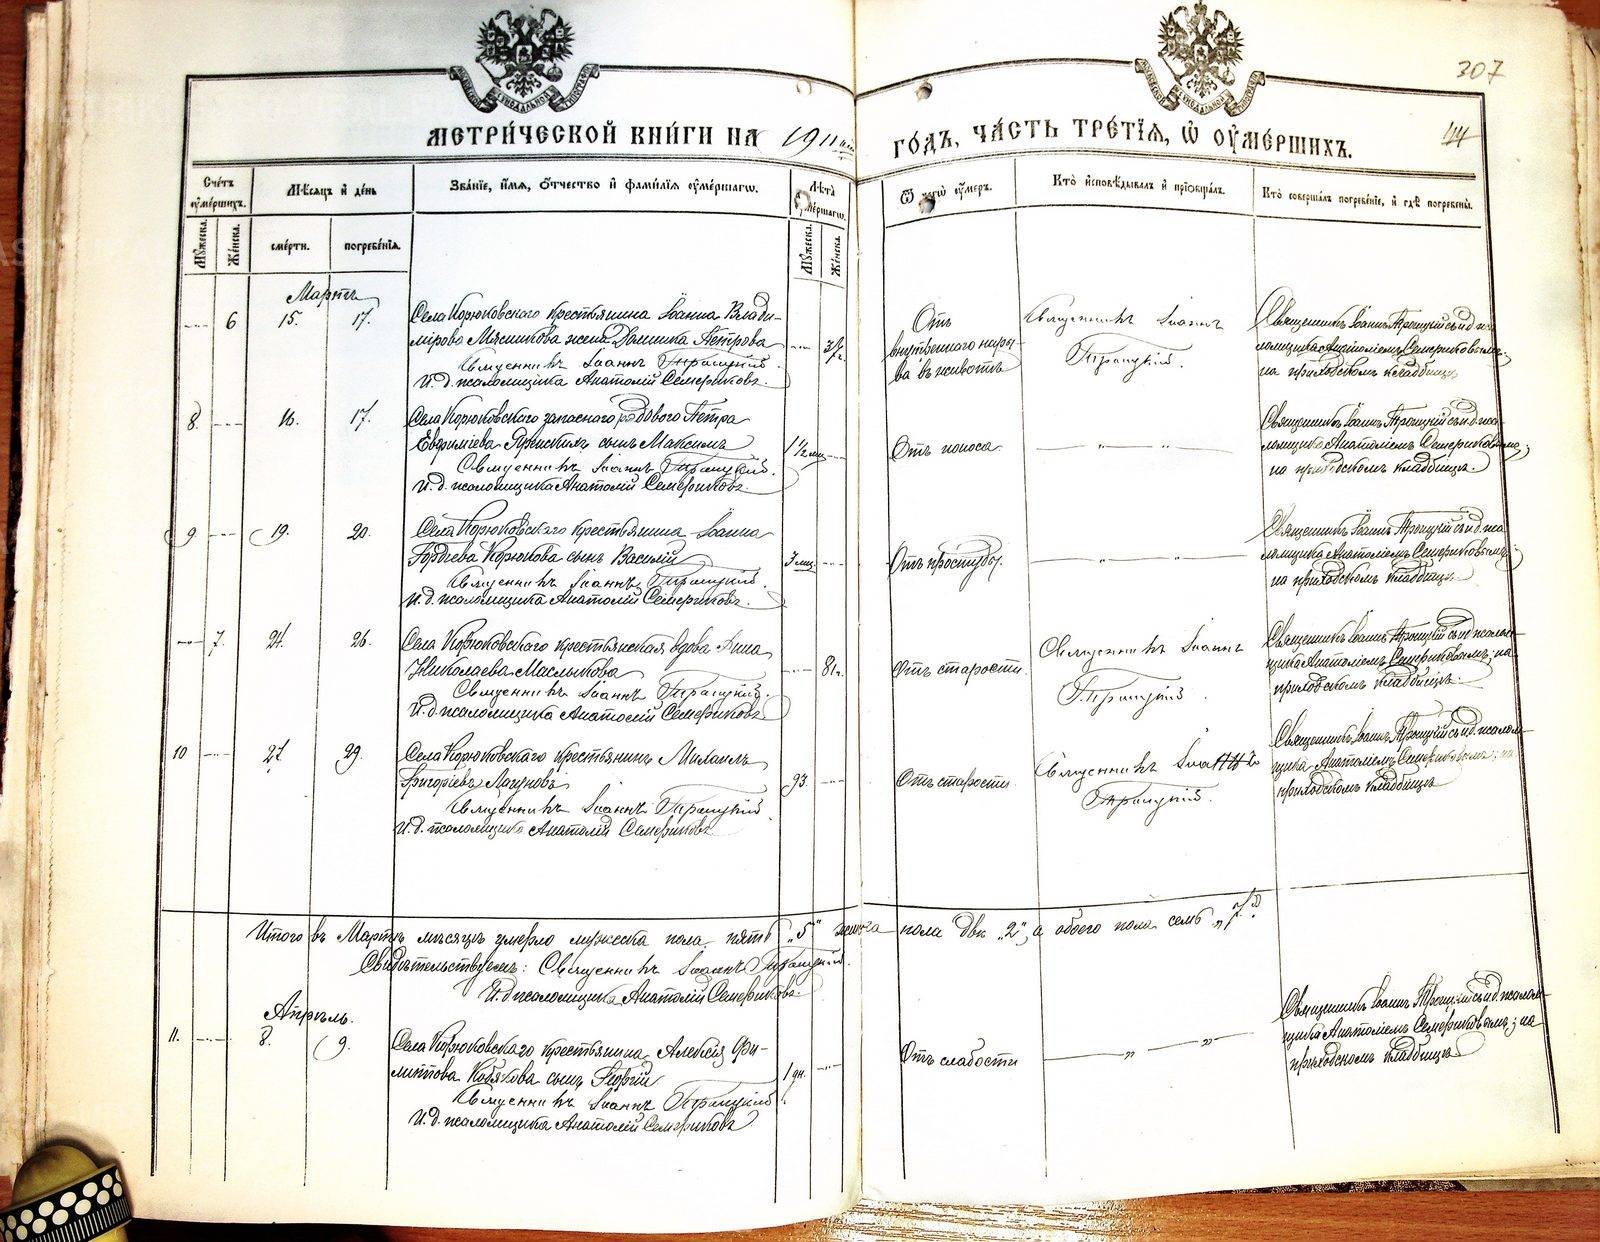 307
44
МЕТРИ́ЧЕСКОЙ КНИ́ГИ НА 1911 ГО́ДЪ, ЧА́СТЬ ТРЕ́ТЇѦ, Ѡ҆ ОУ҆МЕ́РШИХЪ.
Сче́тъ оу҆ме́ршихъ.
Мꙋ́жеска.
Же́нска.
Мѣ́сѧцъ и҆ де́нь
сме́рти.
погребе́нїѧ.
Зва́нїе, и҆́мѧ, ѻ҆́тчество и҆ фами́лїѧ оу҆ме́ршагѡ.
Лѣ́та оу҆ме́ршагѡ.
Мꙋ́жеска.
Же́нска.
Ѿ чегѡ̀ оу҆́меръ.
Кто̀ и҆сповѣ́дывалъ и҆ прїѡбща́лъ.
Кто̀ соверша́лъ погребе́нїе, и҆ гдѣ̀ погребе́ны.
Мартъ
6
15.
17.
Села Корюковскаго крестьянина Іоанна Влади-
мірова Мясникова жена Домника Петрова
Священникъ Іоаннъ Троицкій.
И. д. псаломщика Анатолій Семериковъ.
37 г.
Отъ
внутренняго нары-
ва въ животѣ
Священникъ Іоаннъ
Троицкій.
Священникъ Іоаннъ Троицкій съ и. д. пса-
ломщика Анатоліемъ Семериковымъ;
на приходскомъ кладбищѣ
8.
16.
17.
Села Корюковскаго запаснаго рядового Петра
Евфиміева сынъ Максимъ
Священникъ Іоаннъ Троицкій.
И. д. псаломщика Анатолій Семериковъ.
1 1/2 мц.
Отъ поноса.
— „ — „ —
Священникъ Іоаннъ Троицкій съ и. д. пса-
ломщика Анатоліемъ Семериковымъ;
на приходскомъ кладбищѣ.
9
19.
20.
Села Корюковскаго крестьянина Іоанна
Гордѣева Корюкова сынъ Василій
Священникъ Іоаннъ Троицкій.
И. д. псаломщика Анатолій Семериковъ.
мц.
Отъ простуды.
— „ — „ —
Священникъ Іоаннъ Троицкій съ и. д. пса-
ломщика Анатоліемъ Семериковымъ;
на приходскомъ кладбищѣ.
7.
24.
26.
Села Корюковскаго крестьянская вдова Анна
Николаева Маслыкова
Священникъ Іоаннъ Троицкій.
И. д. псаломщика Анатолій Семериковъ.
81 г.
Отъ старости.
Священникъ Іоаннъ
Троицкій.
Священникъ Іоаннъ Троицкій съ и. д. псалом-
щика Анатоліемъ Семериковымъ; на
приходскомъ кладбищѣ.
10
27.
29.
Села Корюковскаго крестьянинъ Михаилъ
Григоріевъ Лагуновъ
Священникъ Іоаннъ Троицкій.
И. д. псаломщика Анатолій Семериковъ
93.
Отъ старости
Священникъ Іоаннъ
Троицкій.
Священникъ Іоаннъ Троицкій съ и. д. псалом-
щика Анатоліемъ Семериковымъ; на
приходскомъ кладбищѣ
Итого въ Мартѣ мѣсяцѣ умерло мужеска пола пять „5“ женска пола двѣ „2“, а обоего пола семь „7“
Свидѣтельствуемъ: Священникъ Іоаннъ Троицкій.
И. д. псаломщика Анатолій Семериковъ.
Апрѣль.
11.
8.
9.
Села Корюковскаго крестьянина Алексія Фи-
липпова Кобякова сынъ Георгій
Священникъ Іоаннъ Троицкій.
И. д. псаломщика Анатолій Семериковъ
1 дн.
Отъ слабости
— „ — „ —
Священникъ Іоаннъ Троицкій съ и. д. псалом-
щика Анатоліемъ Семериковымъ; на
приходскомъ кладбищѣ